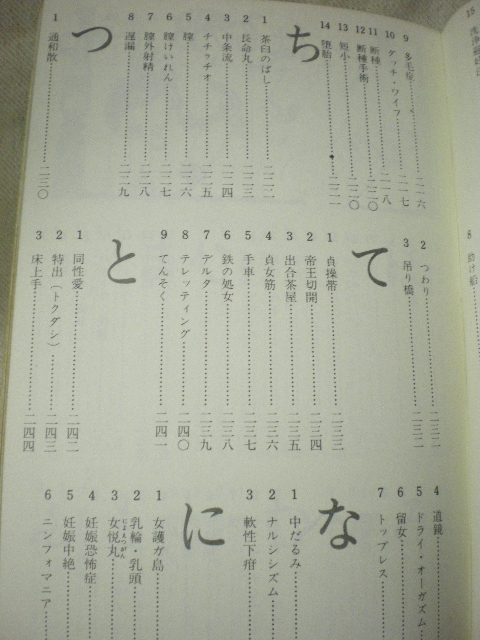 9 多毛症……二一六
10 ダッチ・ワイフ……二一七
11 断種……二一八
12 断種手術……二二〇
13 短小……二二〇
14 堕胎……二二一
ち
1 茶臼のばし……二二二
2 長命丸……二二三
3 中条流……二二四
4 チチョチオ……二二五
5 膣……二二六
6 膣けいれん……二二七
7 膣外射精……二二八
8 遅漏……二二九
つ
1 通和散……二三〇
2 つわり……二三二
3 吊り橋……二三二
て
1 貞操帯……二三三
2 帝王切開……二三四
3 出合茶屋……二三五
4 貞女筋……二三六
5 手車……二三七
6 鉄の処女……二三八
7 デルタ……二三九
8 テレッティング……二四〇
9 てんそく……二四一
と
1 同性愛……二四二
2 特出（トクダシ）……二四三
3 床上手……二四四
4 道鏡
5 ドライ・オーガズム
6 留女
7 トップレス
な
1 中だるみ
2 ナルシシズム
3 軟性下疳
に
1 女護ガ島
2 乳輪・乳頭
3 女悦丸
4 妊娠恐怖症
5 妊娠中絶
6 ニンフォマニア
15
8 助け船